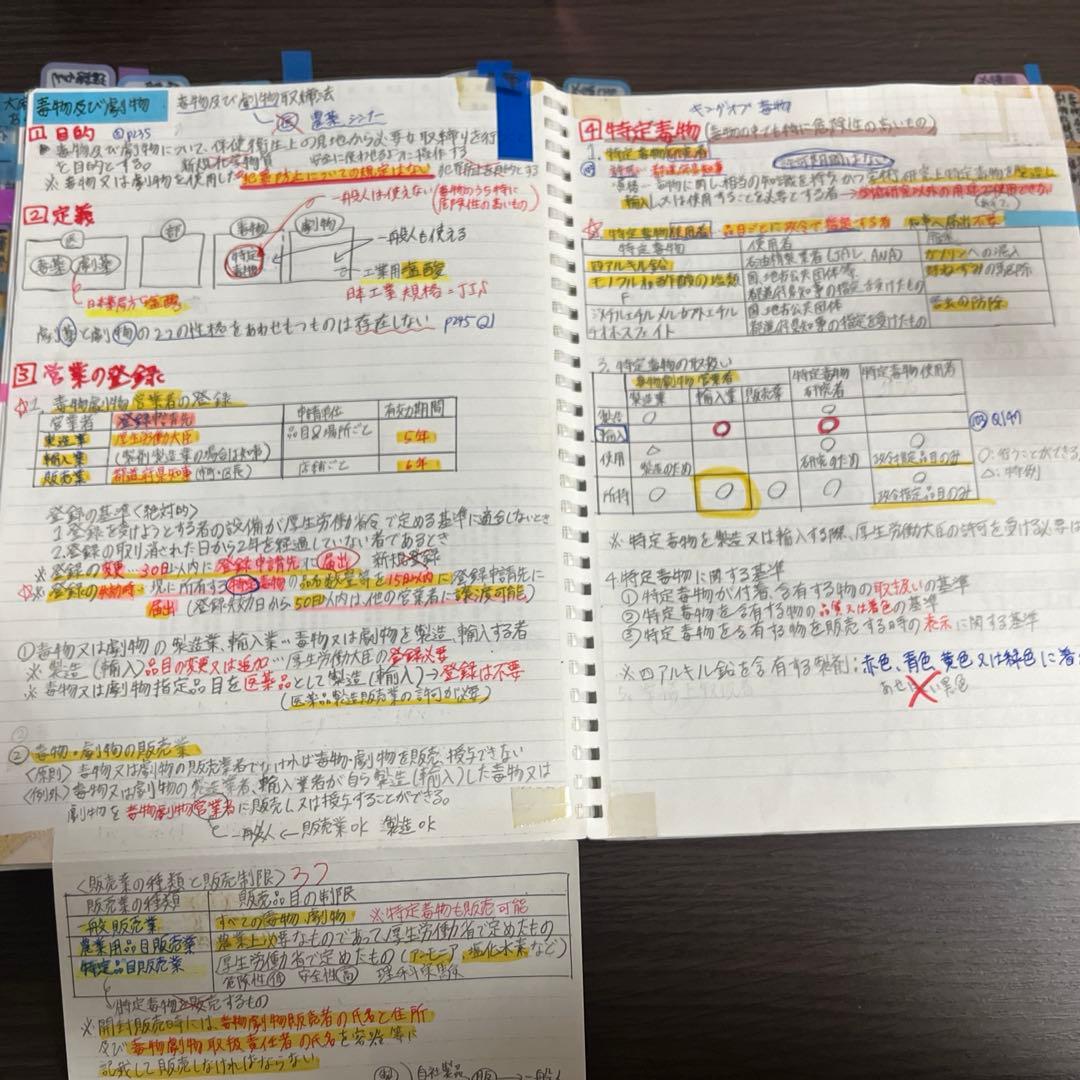 毒物及び劇物
毒物及び劇物取締法
農薬 シンナー
1 目的 P235
毒物及び劇物について、保健衛生上の見地から必要な取締りを行
を目的とする。
※毒物又は劇物を使用した犯罪防止についての規定はない
一般人は使えない(毒物のうち特に
危険性の高いもの)
2 定義
医
部
毒物
劇物
毒薬 劇薬
特定毒物
一般人も使える
工業用塩酸
日本薬局方塩酸
日本工業規格=JIS
劇薬と劇物の2つの性格をあわせもつものは存在しない P245 Q1
3 営業の登録
☆1. 毒物劇物営業者の登録
営業者 登録申請先 申請単位 有効期間
製造業 厚生労働大臣 品目及場所ごと 5年
輸入業 (製剤製造業の場合は知事)
販売業 都道府県知事(市長・区長) 店舗ごと 6年
登録の基準<絶対的>
1.登録を受けようとする者の設備が厚生労働省令で定める基準に適合しないとき
2.登録の取り消された日から2年を経過していない者であるとき
※登録の変更…30日以内に登録申請先に届出 新規登録
☆※登録の失効時…現に所有する特定毒物の品名数量等を15日以内に登録申請先に
届出(登録失効日から50日以内は他の営業者に譲渡可能)
①毒物又は劇物の製造業、輸入業…毒物又は劇物を製造、輸入する者
※製造(輸入)品目の変更又は追加…厚生労働大臣の登録必要
※毒物又は劇物指定品目を医薬品として製造(輸入)→登録は不要
(医薬品製造販売業の許可が必要)
②毒物・劇物の販売業
<原則>毒物又は劇物の販売業者でなければ毒物・劇物を販売、授与できない
<例外>毒物又は劇物の製造業者、輸入業者が自ら製造(輸入)した毒物又は
劇物を毒物劇物営業者に販売し又は授与することができる。
一般人←販売業OK 製造OK
<販売業の種類と販売制限> 3つ
販売業の種類 販売品目の制限
一般販売業 すべての毒物、劇物 ※特定毒物も販売可能
農業用品目販売業 農業上必要なものであって、厚生労働省で定めたもの
特定品目販売業 厚生労働省で定めたもの(アンモニア、塩化水素など)
危険性(低) 安全性(高) 理科実験
特定毒物を販売するもの
※開封販売時には、毒物劇物販売者の氏名と住所
及び毒物劇物取扱責任者の氏名を容器等に
記載して販売しなければならない
自社製品
一般人
キングオブ毒物
4 特定毒物(毒物の中でも特に危険性の高いもの)
1. 特定毒物研究者
許可期間はない
輸入し又は使用することを必要とする者→学術研究以外の用途で使用できない
特定毒物使用者 品目ごとに政令で指定する者 知事へ届出不要
特定毒物 使用者 用途
四アルキル鉛 石油精製業者(JAL、ANA) ガソリンへの混入
国、地方公共団体等
都道府県知事の指定を受けたもの
野ねずみの駆除
ジメチルエチルメルカプトエチル 国、地方公共団体 害虫の防除
チオホスフェイト 都道府県知事の指定を受けたもの
3. 特定毒物の取扱い
毒物劇物営業者 特定毒物研究者 特定毒物使用者
製造業 輸入業 販売業
製造 ○ ○
輸入 ○ ○
使用 △ ○ ○
製造のため 研究のため 政令指定品目のみ
所持 ○ ○ ○ ○ ○
政令指定品目のみ
Q147
○:行うことができる
△:特例
※特定毒物を製造又は輸入する際、厚生労働大臣の許可を受ける必要は
4.特定毒物に関する基準
①特定毒物が付着、含有する物の取扱いの基準
②特定毒物を含有する物の品質又は着色の基準
③特定毒物を含有する物を販売する時の表示に関する基準
※四アルキル鉛を含有する製剤:赤色、青色、黄色又は緑色に着
黒色